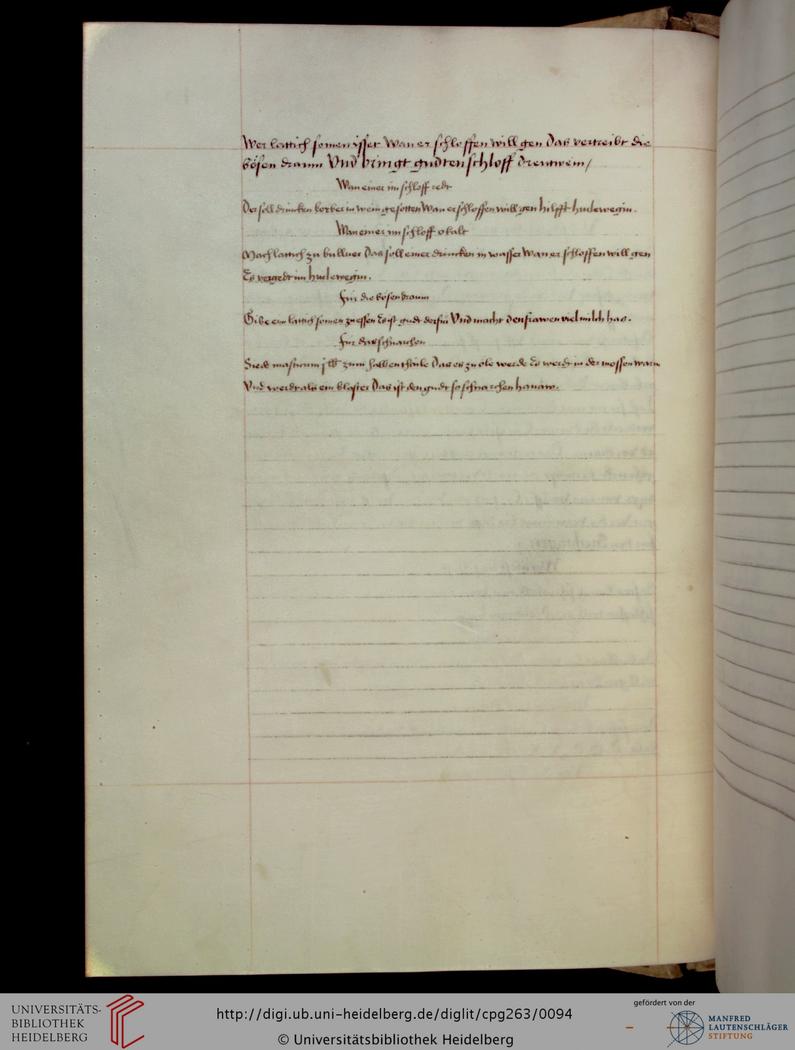 Wer lattich somen isset wan er schloffen will gen Das vertreibt die
bösen draum Vnd bringt gudten schloff
Wan einer im schloff redt
Der soll drincken in wein gesotten Wan er schloffen will gen hilfft
Wan einer im schloff
Mach lattich zu bulluer Das soll einer drincken in wasser Wan er schloffen will gen
Es vergedt im
Fur die bosen draum
Gibe ein lattich somen zu essen Es ist gudt Vnd macht den frawen viel milch
Fur das schnarchen
Siede zum halben theile Das es zu ole werde Es werdt in der mossen warm
Vnd werdt als ein Das ist den gudt so schnarchen
UNIVERSITÄTS-
BIBLIOTHEK
HEIDELBERG
http://digi.ub.uni-heidelberg.de/diglit/cpg263/0094
© Universitätsbibliothek Heidelberg
gefördert von der
MANFRED
LAUTENSCHLÄGER
STIFTUNG